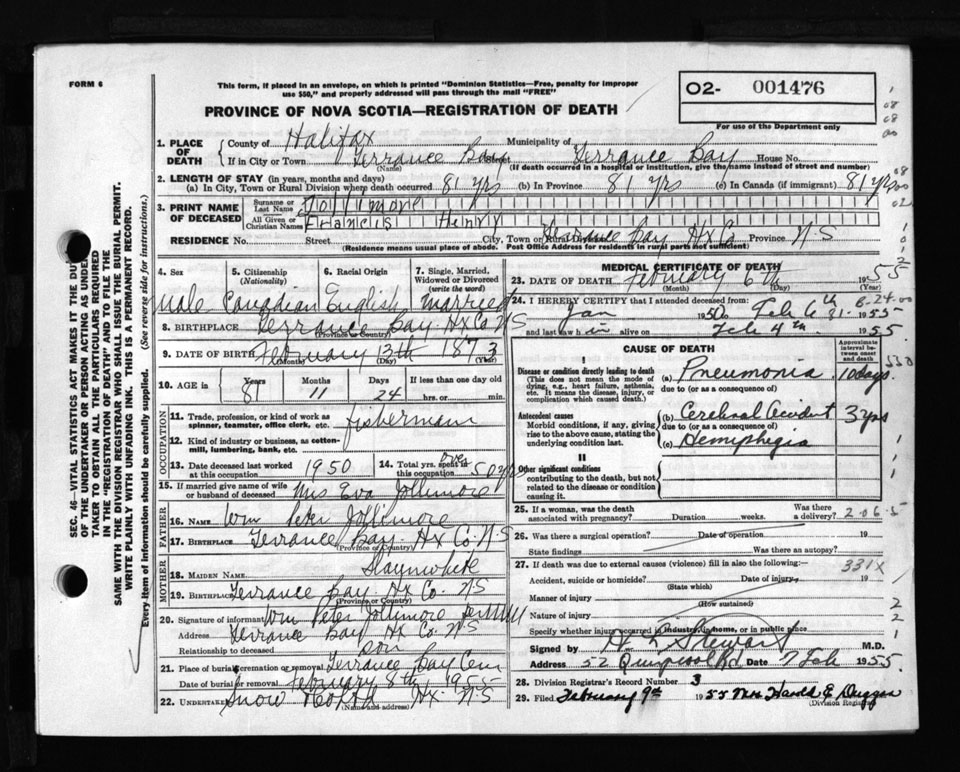 FORM 6
This form, if placed in an envelope, on which is printed "Dominion Statistics—Free, penalty for improper
use $50," and properly addressed will pass through the mail "FREE"
PROVINCE OF NOVA SCOTIA—REGISTRATION OF DEATH
02- 001476
For use of the Department only
1. PLACE OF DEATH County of Halifax Municipality of
If in City or Town Terrance Bay Street Terrance Bay House No.
(Name) (If death occurred in a hospital or institution, give the name instead of street and number)
2. LENGTH OF STAY (in years, months and days)
(a) In City, Town or Rural Division where death occurred 81 yrs (b) In Province 81 yrs (c) In Canada (if immigrant) 81 yrs
3. PRINT NAME OF DECEASED Surname or Last Name Jollimore
All Given or Christian Names Francis Henry
RESIDENCE No. Street City, Town or Rural Division Terrance Bay Hx Co Province N S
(Residence means usual place of abode. Post Office Address for residents in rural parts not sufficient)
4. Sex 5. Citizenship (Nationality) 6. Racial Origin 7. Single, Married, Widowed or Divorced (write the word)
Male Canadian English married
8. BIRTHPLACE Terrance Bay Hx Co N S
(Province or Country)
9. DATE OF BIRTH February 13th 1873
(Month) (Day) (Year)
10. AGE in Years Months Days If less than one day old
81 11 24 hrs. or min.
OCCUPATION
11. Trade, profession, or kind of work as spinner, teamster, office clerk, etc. fisherman
12. Kind of industry or business, as cotton-mill, lumbering, bank, etc.
13. Date deceased last worked at this occupation 1950 14. Total yrs. spent in this occupation over 50 yrs
15. If married give name of wife or husband of deceased Mrs Eva Jollimore
FATHER
16. NAME Wm Peter Jollimore
17. BIRTHPLACE Terrance Bay Hx Co N S
(Province or Country)
MOTHER
18. MAIDEN NAME Slaunwhite
19. BIRTHPLACE Terrance Bay Hx Co. N S
(Province or Country)
20. Signature of informant Wm Peter Jollimore
Address Terrance Bay Hx Co. N S
Relationship to deceased son
21. Place of burial, cremation or removal Terrance Bay Cem
Date of burial or removal February 8th 1955
22. UNDERTAKER Snow Hx. N S
(Name and address)
MEDICAL CERTIFICATE OF DEATH
23. DATE OF DEATH February 6th 1955
(Month) (Day)
24. I HEREBY CERTIFY that I attended deceased from:
Jan 1950 Feb 6th 1955
and last saw h alive on Feb 4th 1955
CAUSE OF DEATH
Approximate interval between onset and death
I
Disease or condition directly leading to death (a) Pneumonia 10 days
(This does not mean the mode of dying, e.g., heart failure, asthenia, etc. It means the disease, injury, or complication which caused death.)
due to (or as a consequence of)
Antecedent causes (b) Cerebral Accident 3 yrs
Morbid conditions, if any, giving rise to the above cause, stating the underlying condition last.
due to (or as a consequence of)
(c) Hemiphegia
II
Other significant conditions
contributing to the death, but not related to the disease or condition causing it.
25. If a woman, was the death associated with pregnancy? Duration weeks. Was there a delivery?
26. Was there a surgical operation? Date of operation 19
State findings Was there an autopsy?
27. If death was due to external causes (violence) fill in also the following:— 331X
Accident, suicide or homicide? Date of injury 19
(State which)
Manner of injury
(How sustained)
Nature of injury
Specify whether injury occurred in industry, in home, or in public place
Signed by Stewart M.D.
Address 52 Quinpool Rd Date 7 Feb 1955
28. Division Registrar's Record Number 3
29. Filed February 9th 1955 Mrs. Harold E Duggan
(Division Registrar)
SEC. 46—VITAL STATISTICS ACT MAKES IT THE DUTY
OF THE UNDERTAKER OR PERSON ACTING AS UNDER-
TAKER TO OBTAIN ALL THE PARTICULARS REQUIRED
IN THE "REGISTRATION OF DEATH" AND TO FILE THE
SAME WITH THE DIVISION REGISTRAR WHO SHALL ISSUE THE BURIAL PERMIT.
WRITE PLAINLY WITH UNFADING INK. THIS IS A PERMANENT RECORD.
Every item of information should be carefully supplied. (See reverse side for instructions.)